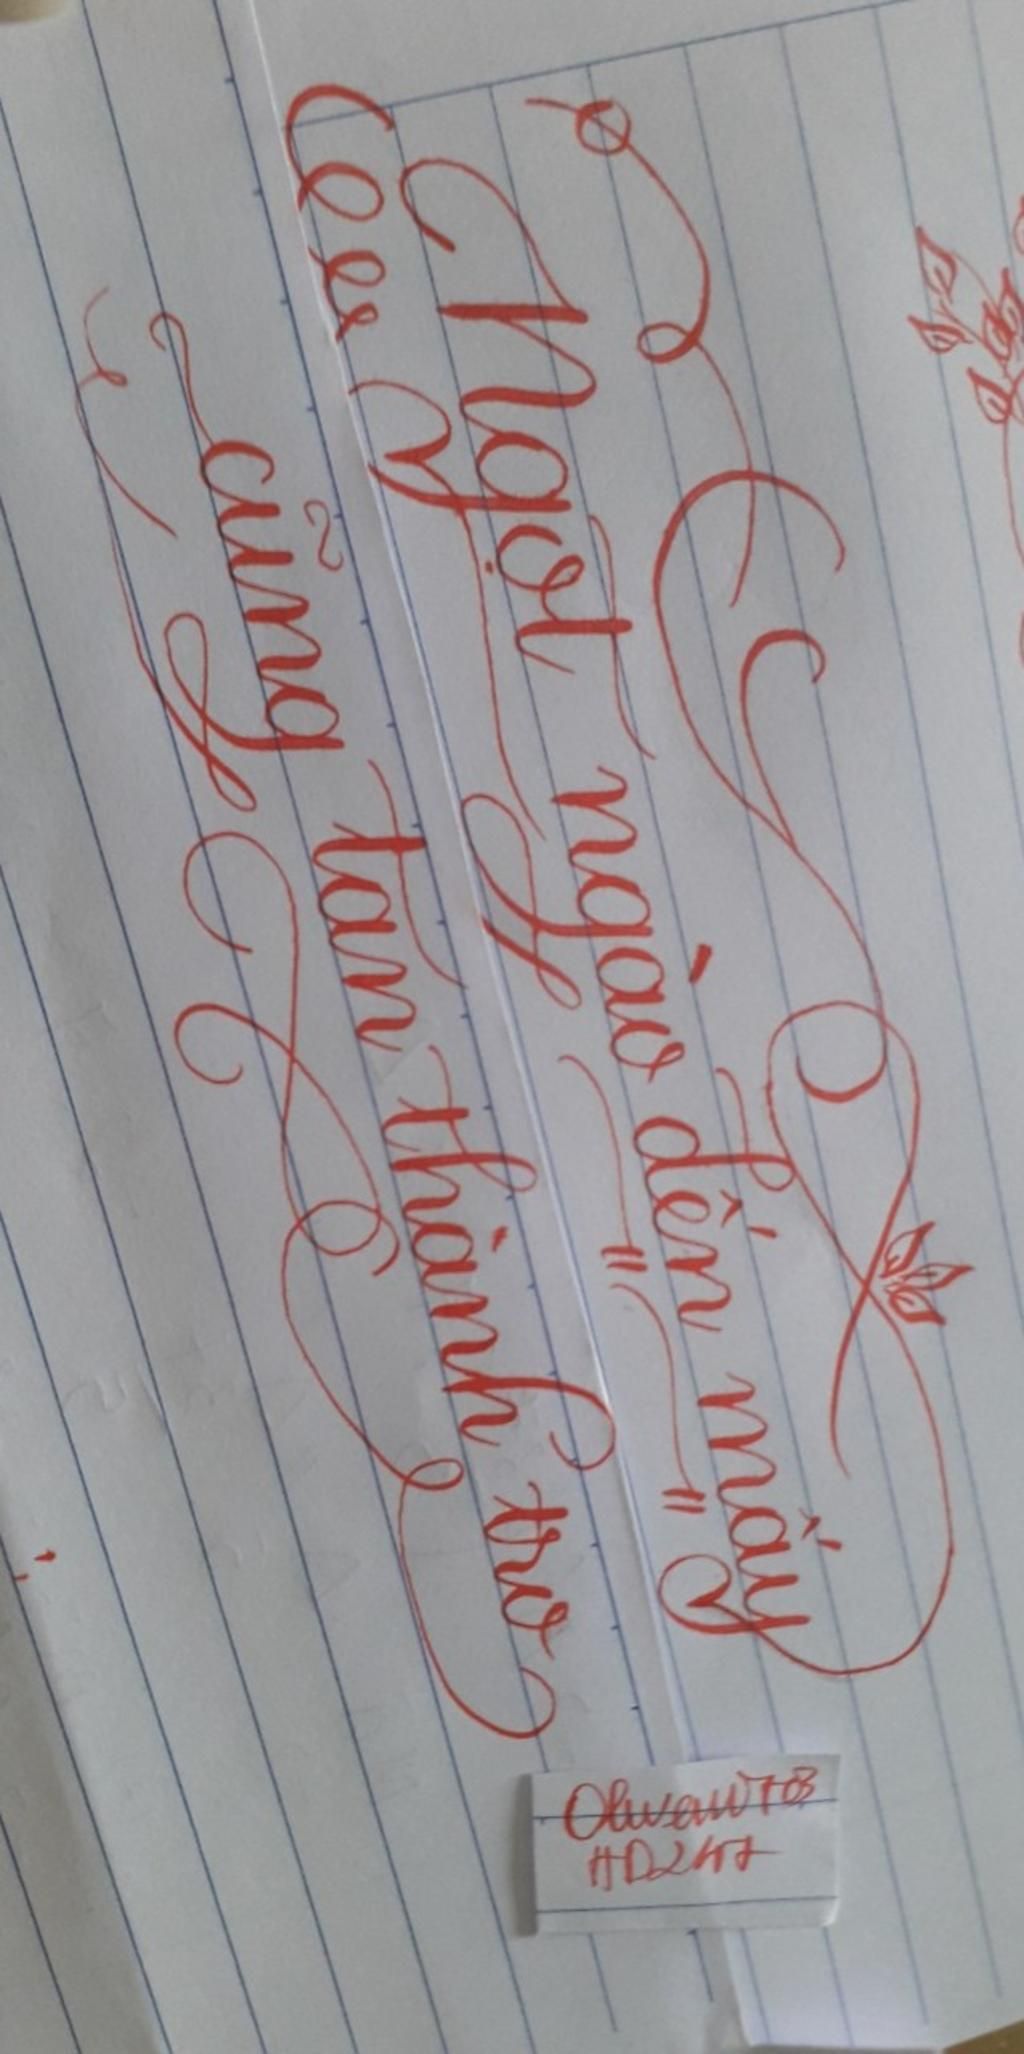 Ngọt ngào đến mấy
cũng tan thành tro
HD247